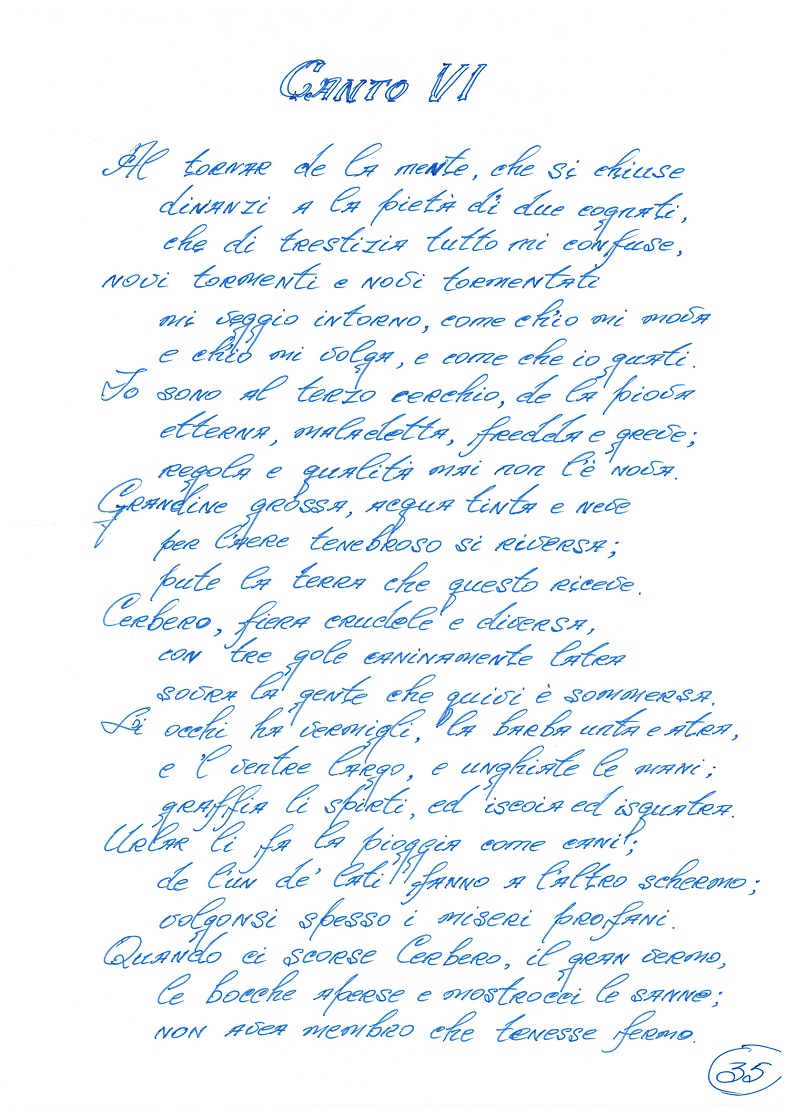 Canto VI
Al tornar de la mente, che si chiuse
dinanzi a la pietà di due cognati,
che di trestizia tutto mi confuse,
novi tormenti e novi tormentati
mi veggio intorno, come ch'io mi mova
e ch'io mi volga, e come che io guati.
Io sono al terzo cerchio, de la piova
etterna, maladetta, fredda e greve;
regola e qualità mai non l'è nova.
Grandine grossa, acqua tinta e neve
per l'aere tenebroso si riversa;
pute la terra che questo riceve.
Cerbero, fiera crudele e diversa,
con tre gole caninamente latra
sovra la gente che quivi è sommersa.
Li occhi ha vermigli, la barba unta e atra,
e 'l ventre largo, e unghiate le mani;
graffia li spirti, ed iscoia ed isquatra.
Urlar li fa la pioggia come cani;
de l'un de' lati fanno a l'altro schermo;
volgonsi spesso i miseri profani.
Quando ci scorse Cerbero, il gran vermo,
le bocche aperse e mostrocci le sanne;
non avea membro che tenesse fermo.
35